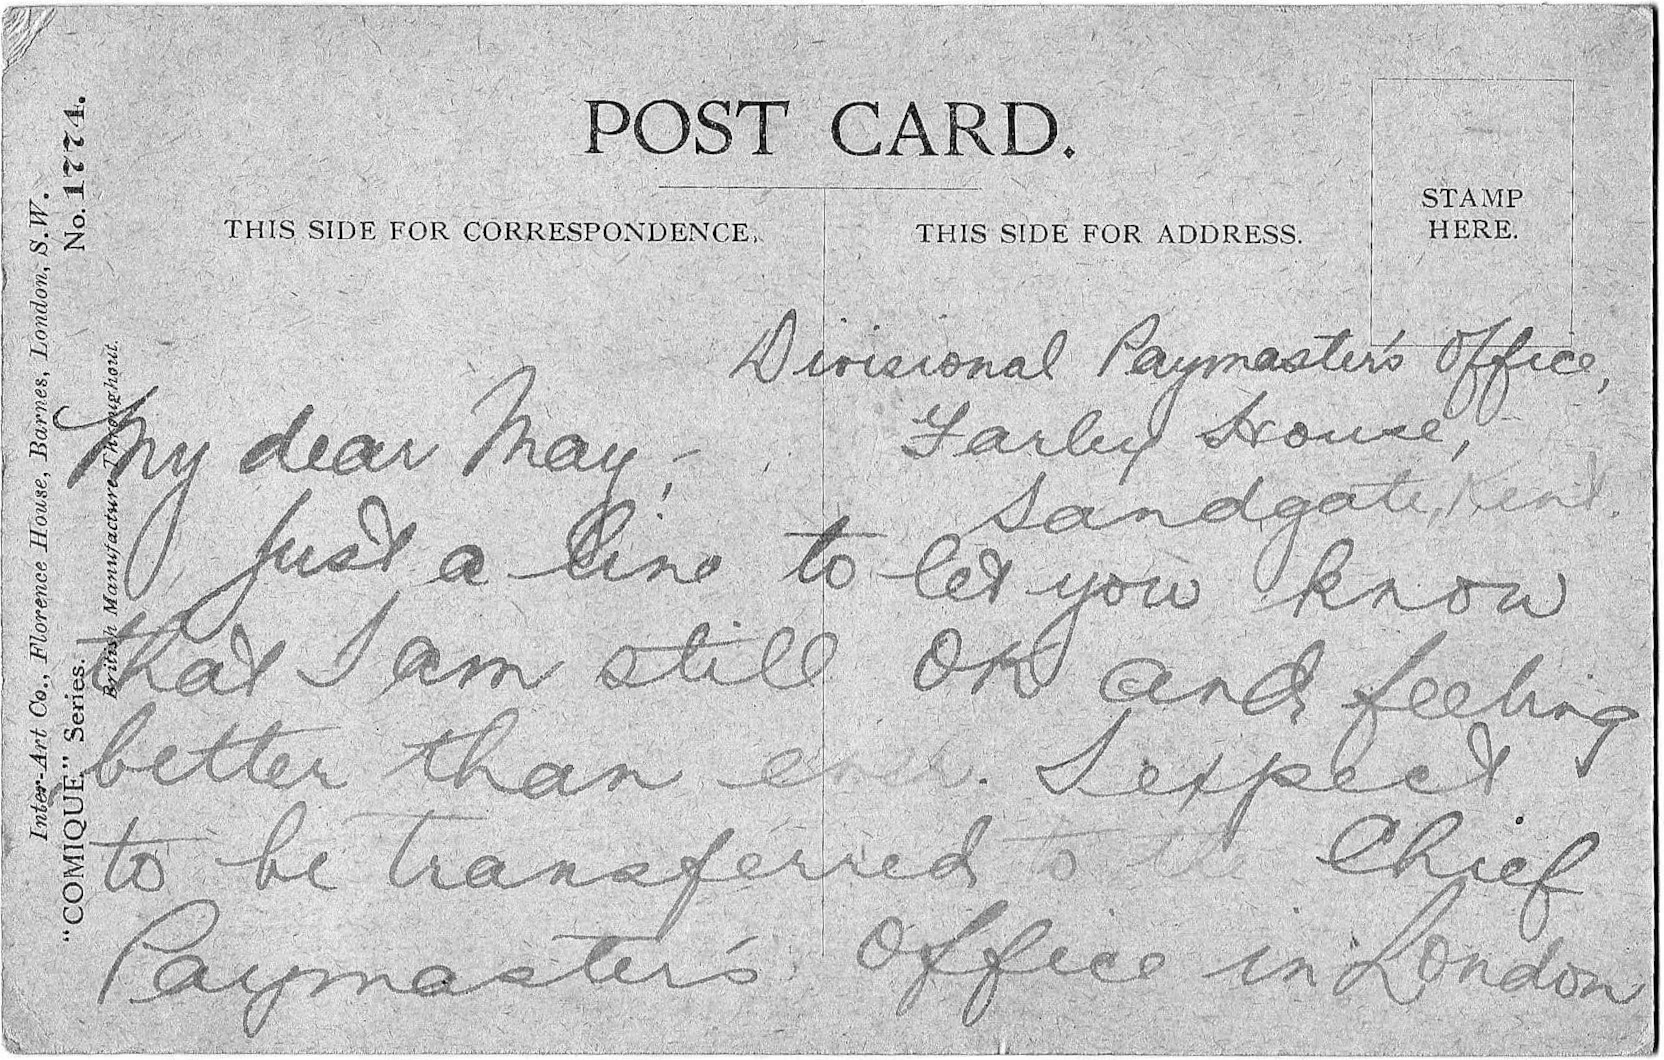 POST CARD.
THIS SIDE FOR CORRESPONDENCE.
THIS SIDE FOR ADDRESS.
STAMP
HERE.
Inter-Art Co., Florence House, Barnes, London, S.W.
"COMIQUE" Series.
No. 1774.
British Manufacture Throughout.
Divisional Paymaster's Office,
Farley House,
Sandgate, Kent.
My dear May, -
Just a line to let you know
that I am still OK and feeling
better than ever. I expect
to be transferred to the Chief
Paymaster's Office in London